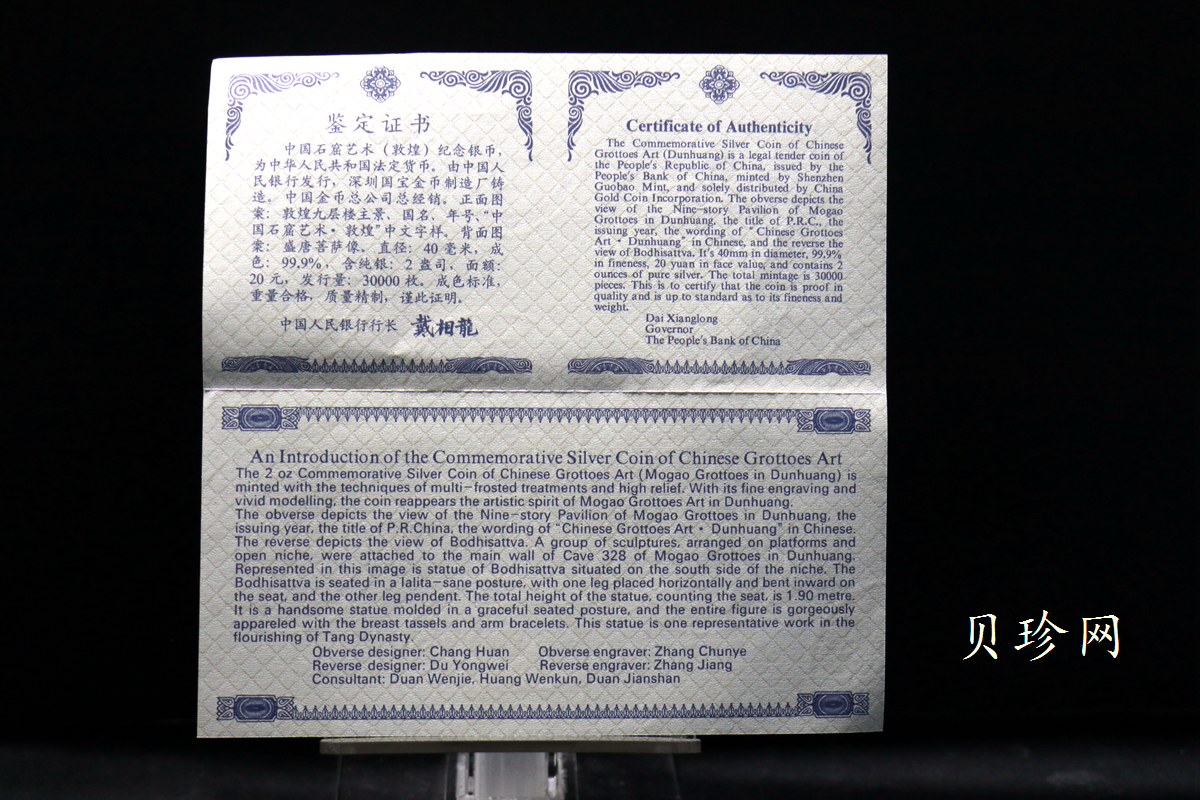 鉴定证书
中国石窟艺术（敦煌）纪念银币，
为中华人民共和国法定货币。由中国人
民银行发行，深圳国宝金币制造厂铸
造。中国金币总公司总经销。正面图
案：敦煌九层楼主景、国名、年号、“中
国石窟艺术·敦煌”中文字样。背面图
案：盛唐菩萨像。直径：40毫米，成
色：99.9%，含纯银：2盎司，面额：
20元，发行量：30000枚。成色标准，
重量合格，质量精制，谨此证明。
中国人民银行行长 戴相龍
Certificate of Authenticity
The Commemorative Silver Coin of Chinese
Grottoes Art (Dunhuang) is a legal tender coin of
the People's Republic of China, issued by the
People's Bank of China, minted by Shenzhen
Guobao Mint, and solely distributed by China
Gold Coin Incorporation. The obverse depicts the
view of the Nine-story Pavilion of Mogao
Grottoes in Dunhuang, the title of P.R.C., the
issuing year, the wording of “Chinese Grottoes
Art·Dunhuang” in Chinese, and the reverse the
view of Bodhisattva. It's 40mm in diameter, 99.9%
in fineness, 20 yuan in face value, and contains 2
ounces of pure silver. The total mintage is 30000
pieces. This is to certify that the coin is proof in
quality and is up to standard as to its fineness and
weight.
Dai Xianglong
Governor
The People's Bank of China
An Introduction of the Commemorative Silver Coin of Chinese Grottoes Art
The 2 oz Commemorative Silver Coin of Chinese Grottoes Art (Mogao Grottoes in Dunhuang) is
minted with the techniques of multi-frosted treatments and high relief. With its fine engraving and
vivid modelling, the coin reappears the artistic spirit of Mogao Grottoes Art in Dunhuang.
The obverse depicts the view of the Nine-story Pavilion of Mogao Grottoes in Dunhuang, the
issuing year, the title of P.R.China, the wording of “Chinese Grottoes Art·Dunhuang” in Chinese.
The reverse depicts the view of Bodhisattva. A group of sculptures, arranged on platforms and
open niche, were attached to the main wall of Cave 328 of Mogao Grottoes in Dunhuang.
Represented in this image is statue of Bodhisattva situated on the south side of the niche. The
Bodhisattva is seated in a lalita-sane posture, with one leg placed horizontally and bent inward on
the seat, and the other leg pendent. The total height of the statue, counting the seat, is 1.90 metre.
It is a handsome statue molded in a graceful seated posture, and the entire figure is gorgeously
appareled with the breast tassels and arm bracelets. This statue is one representative work in the
flourishing of Tang Dynasty.
Obverse designer: Chang Huan Obverse engraver: Zhang Chunye
Reverse designer: Du Yongwei Reverse engraver: Zhang Jiang
Consultant: Duan Wenjie, Huang Wenkun, Duan Jianshan
贝珍网